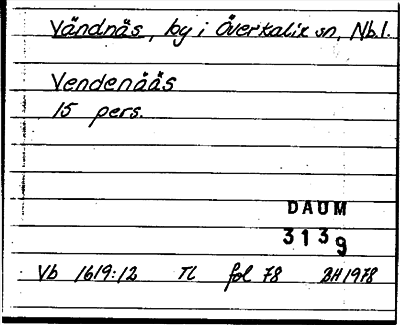 Vändnäs, by i Överkalix sn, Nb.l.
Vendenääs
15 pers.
DAUM
3139
Vb 1619:12 TL fol 78 BH 1978